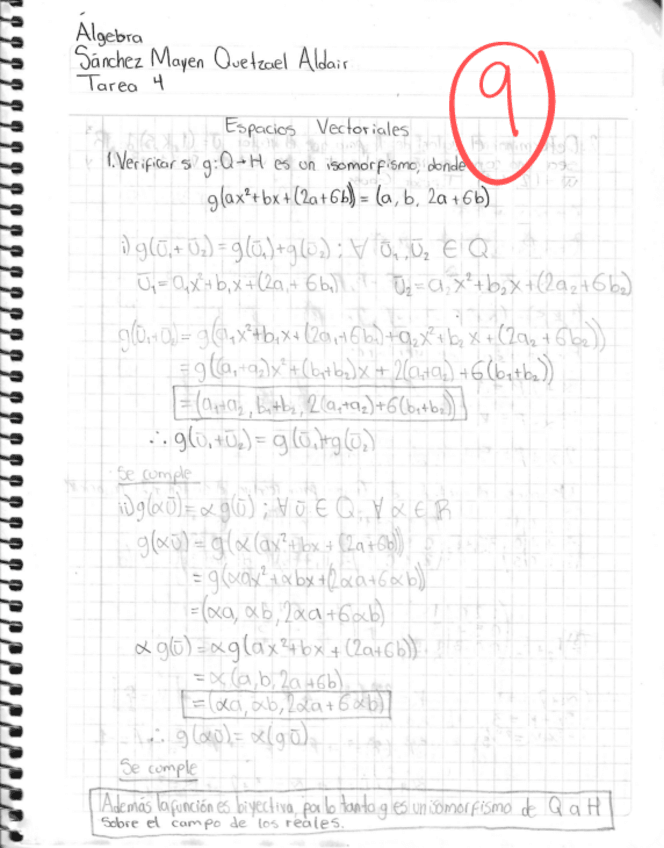 Álgebra
Sánchez Mayen Quetzael Aldair
Tarea 4
9
Espacios Vectoriales
1. Verificar si g: Q→H es un isomorfismo, donde
g(ax²+bx+(2a+6b)) = (a, b, 2a+6b)
i) g(ū₁+ū₂) = g(ū₁)+g(ū₂) ; ∀ ū₁, ū₂ ∈ Q
ū₁ = a₁x²+b₁x+(2a₁+6b₁) ū₂ = a₂x²+b₂x+(2a₂+6b₂)
g(ū₁+ū₂) = g(a₁x²+b₁x+(2a₁+6b₁)+a₂x²+b₂x+(2a₂+6b₂))
= g((a₁+a₂)x²+(b₁+b₂)x + 2(a₁+a₂)+6(b₁+b₂))
= (a₁+a₂, b₁+b₂, 2(a₁+a₂)+6(b₁+b₂))
∴ g(ū₁+ū₂) = g(ū₁)+g(ū₂)
Se cumple
ii) g(αū) = α g(ū) ; ∀ ū ∈ Q, ∀ α ∈ R
g(αū) = g(α(ax²+bx+(2a+6b))
= g(αax²+αbx+(2αa+6αb))
= (αa, αb, 2αa+6αb)
α g(ū) = αg(ax²+bx+(2a+6b))
= α(a, b, 2a+6b)
= (αa, αb, 2αa+6αb)
∴ g(αū) = α(gū)
Se cumple
Además la función es biyectiva, por lo tanto g es un isomorfismo de Q a H
sobre el campo de los reales.